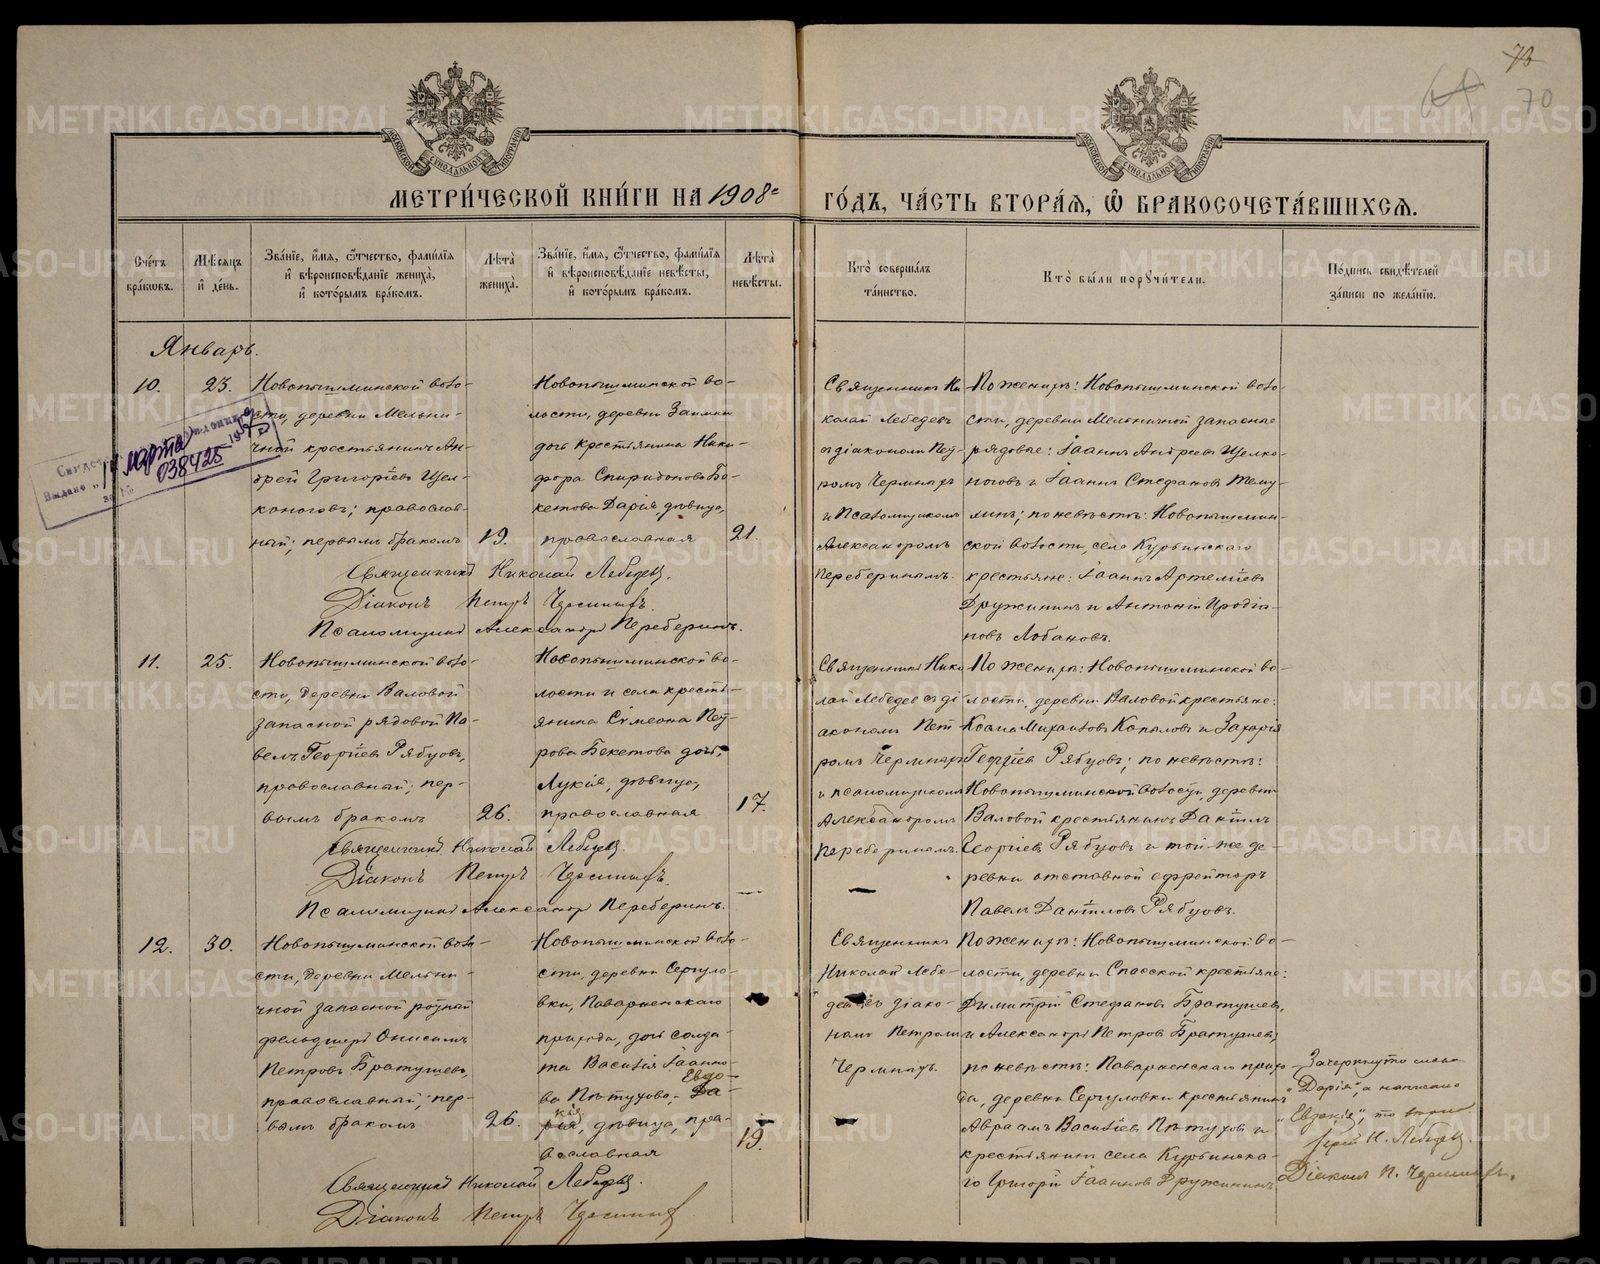 73
70
МЕТРИ́ЧЕСКОЙ КНИ́ГИ НА 1908 ГО́ДЪ, ЧА́СТЬ ВТОРА́Я, Ѽ БРАКОСОЧЕТА́ВШИХСЯ.
Сче́тъ бра́ковъ.
Мѣсяцъ и́ де́нь.
Зва́нїе, и́мя, ѻ҆́тчество, фами́лїя и́ вѣроисповѣ́данїе жениха̀, и́ кото́рымъ бра́комъ.
Лѣ́та жениха̀.
Зва́нїе, и́мя, ѻ҆́тчество, фами́лїя и́ вѣроисповѣ́данїе невѣ́сты, и́ кото́рымъ бра́комъ.
Лѣ́та невѣ́сты.
Кто̀ соверша́лъ та́инство.
Кто̀ бы́ли порꙋчи́тели.
По́дпись свидѣ́телей за́писи по жела́нїю.
Январь.
10.
23.
Новопышминской воло-
сти, деревни Мельни-
чной крестьянинъ Ан-
дрей Григоріевъ Щел-
коноговъ; православ-
ный; первымъ бракомъ
19.
Новопышминской во-
лости, деревни Заимки
дочь крестьянина Ники-
фора Спиридонова Бе-
кетова Дарія, дѣвица,
православная
21.
Священникъ Ни-
колай Лебедевъ
съ діакономъ Пет-
ромъ Чермныхъ
и Псаломщикомъ
Александромъ
Переберинымъ.
По женихѣ: Новопышминской воло-
сти, деревни Мельничной запасные
рядовые: Іоаннъ Андреевъ Щелко-
ноговъ и Іоаннъ Стефановъ
по невѣстѣ: Новопышмин-
ской волости, села Курьинскаго
крестьяне: Іоаннъ Артеміевъ
Дружининъ и Антоній Иродіо-
новъ Лобановъ.
Священникъ Николай Лебедевъ.
Діаконъ Петръ Чермныхъ.
Псаломщикъ Александръ Переберинъ.
14 марта
038425
11.
25.
Новопышминской воло-
сти, деревни Валовой
запасной рядовой Па-
велъ Георгіевъ Рябцовъ,
православный; пер-
вымъ бракомъ
26.
Новопышминской во-
лости и села кресть-
янина Сѵмеона Пет-
рова Бекетова дочь,
Лукія, дѣвица,
православная
17.
Священникъ Нико-
лай Лебедевъ съ ді-
акономъ Пет-
ромъ Чермныхъ
и псаломщикомъ
Александромъ
Переберинымъ.
По женихѣ: Новопышминской во-
лости, деревни Валовой крестьяне:
Михаиловъ Копыловъ и Захарія
Георгіевъ Рябцовъ; по невѣстѣ:
Новопышминской волости, деревни
Валовой крестьянинъ Даніилъ
Георгіевъ Рябцовъ и той-же де-
ревни отставной ефрейторъ
Павелъ Даніиловъ Рябцовъ.
Священникъ Николай Лебедевъ.
Діаконъ Петръ Чермныхъ.
Псаломщикъ Александръ Переберинъ.
12.
30.
Новопышминской воло-
сти, деревни Мельни-
чной запасной ротный
фельдшеръ Онисимъ
Петровъ Братушевъ,
православный; пер-
вымъ бракомъ
26.
Новопышминской воло-
сти, деревни Сергуло-
вки, Паварненскаго
прихода, дочь солда-
та Василія Іоанно-
ва Пѣтухова, Евдо-
Да-
кія
рія, дѣвица, пра-
вославная
19.
Священникъ
Николай Лебе-
девъ съ діако-
номъ Петромъ
Чермныхъ.
По женихѣ: Новопышминской во-
лости, деревни Спасской крестьяне:
Димитрій Стефановъ Братушевъ,
и Александръ Петровъ Братушевъ;
по невѣстѣ: Паварненскаго прихо-
да, деревни Сергуловки крестьянинъ
Авраамъ Василіевъ Пѣтуховъ и
крестьянинъ села Курьинска-
го Григорій Іоанновъ Дружининъ
Зачеркнуто слово
"Дарія", а написано
"Евдокія", то вѣрно
Іерей Н. Лебедевъ.
Діаконъ П. Чермныхъ.
Священникъ Николай Лебедевъ.
Діаконъ Петръ Чермныхъ